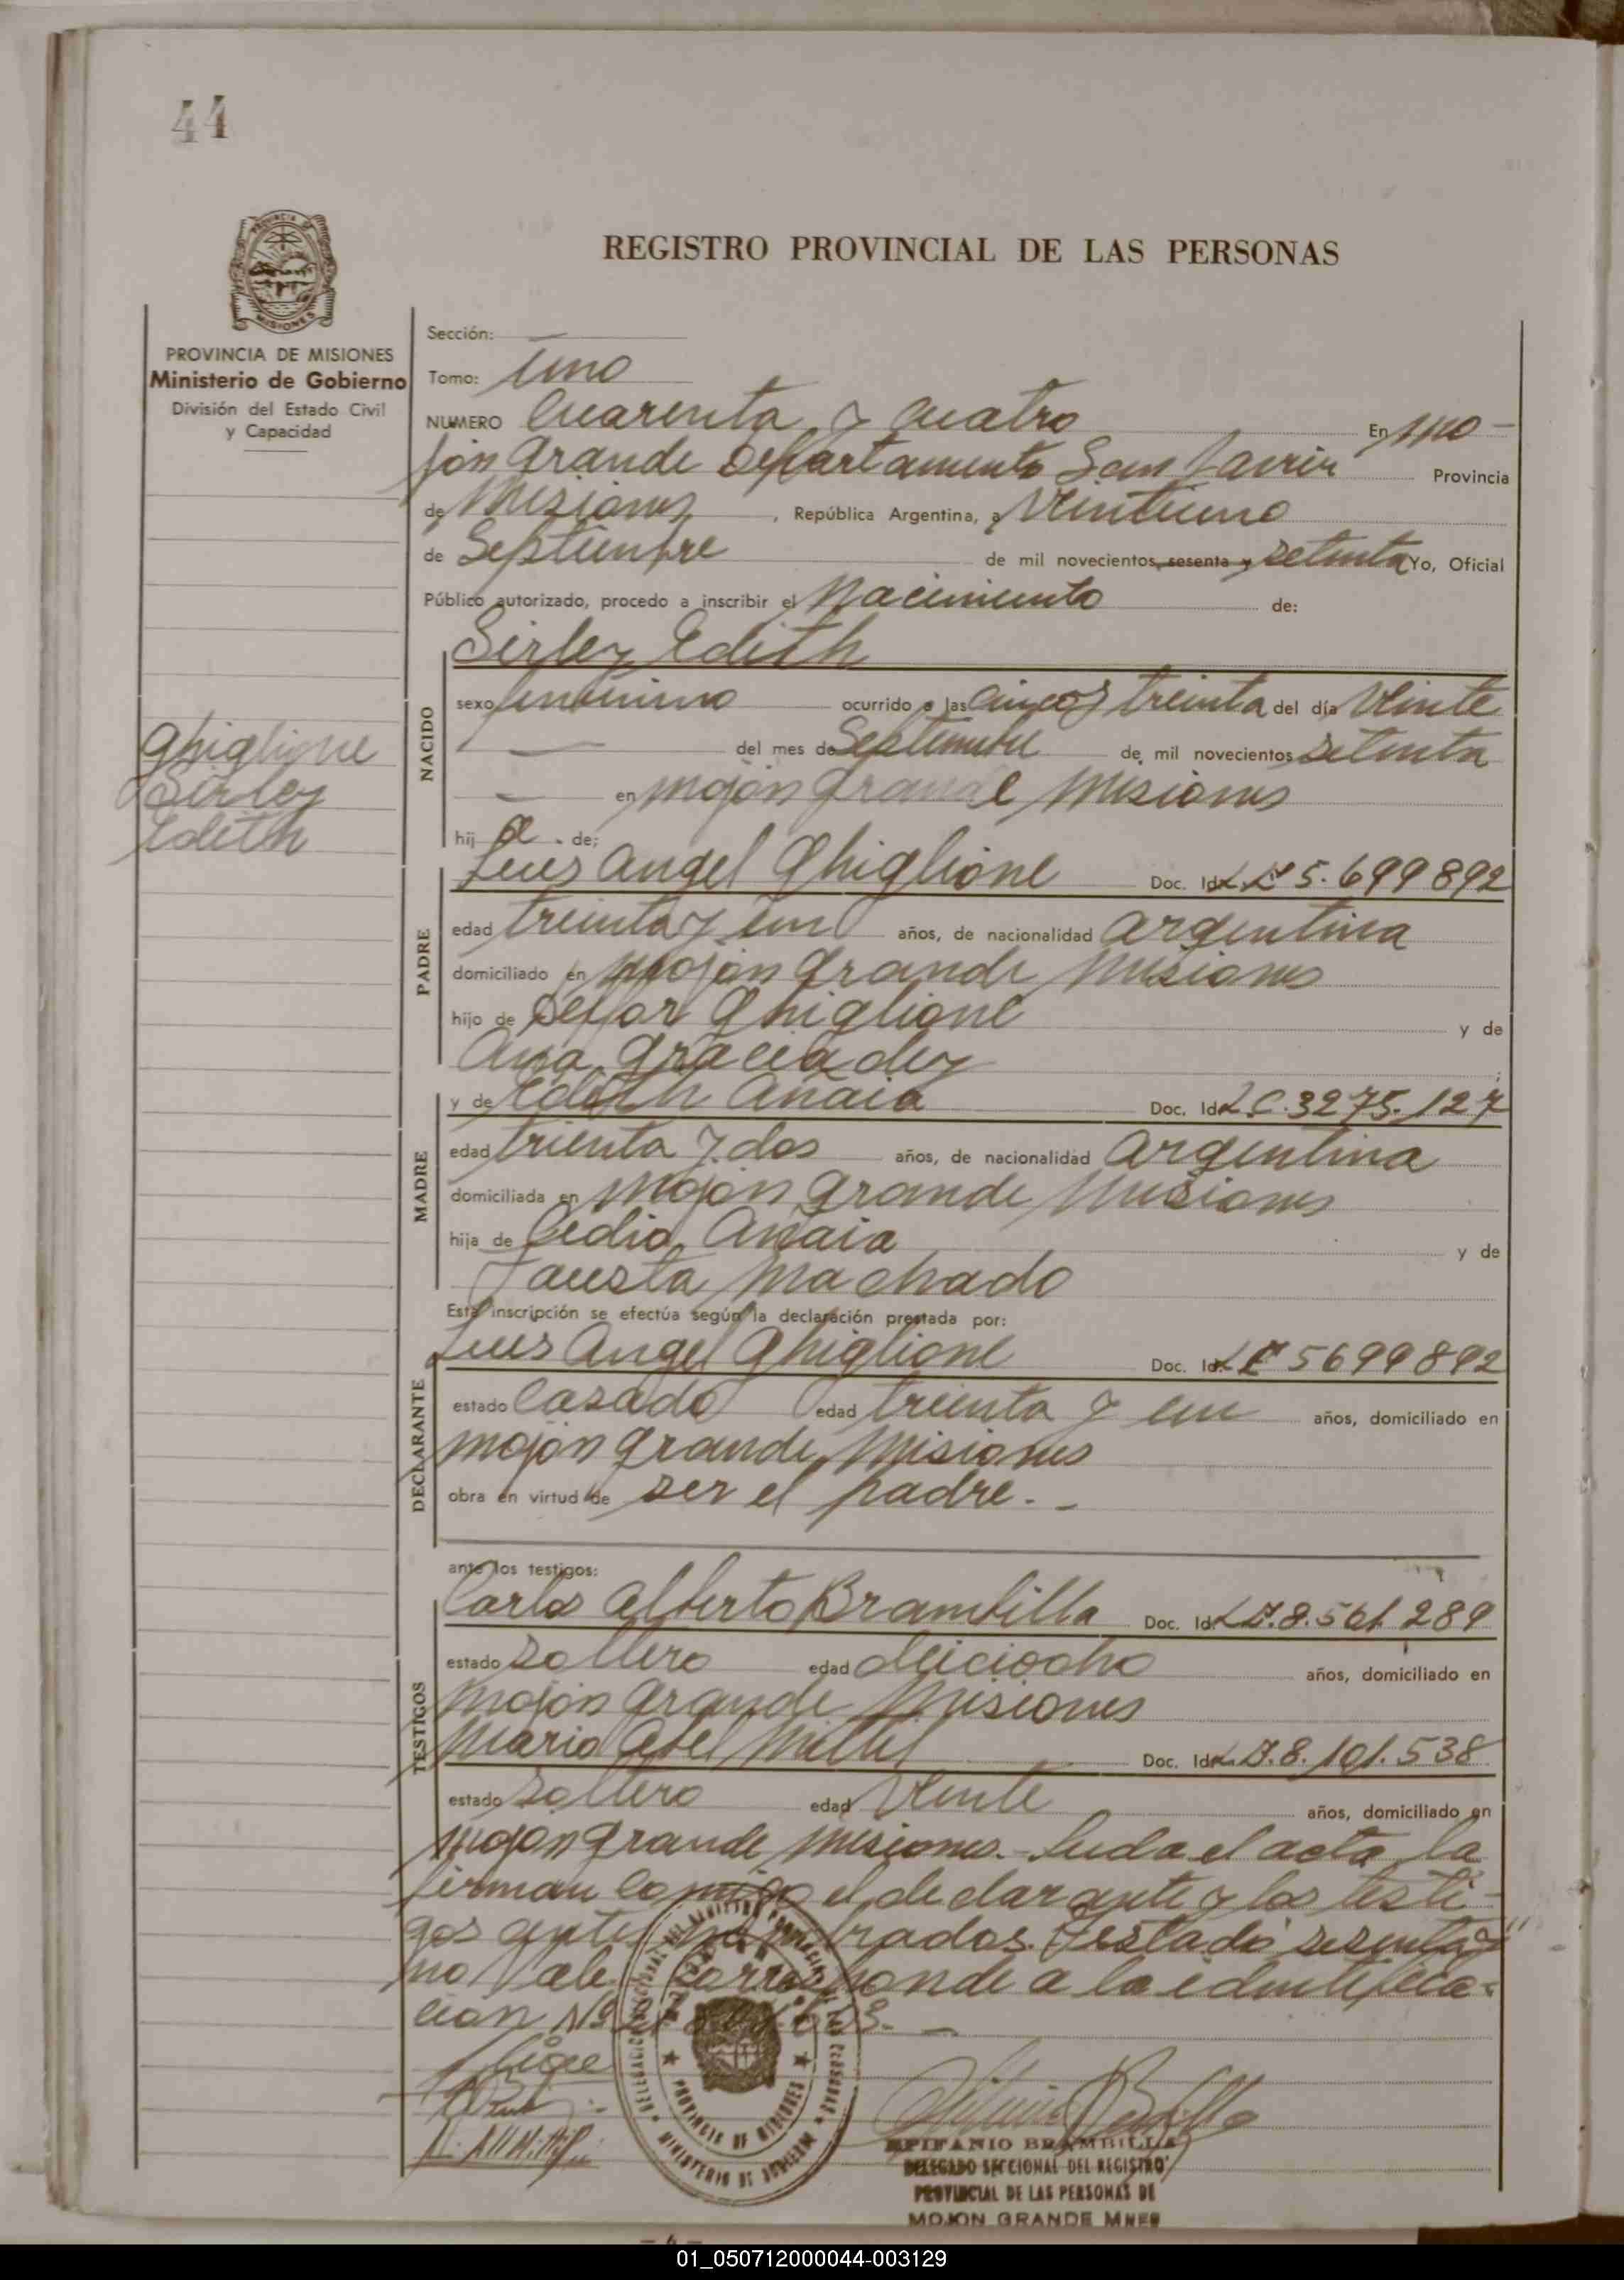 44
REGISTRO PROVINCIAL DE LAS PERSONAS
PROVINCIA DE MISIONES
Ministerio de Gobierno
División del Estado Civil
y Capacidad
Ghiglione
Sirley
Edith
Sección: —
Tomo: Uno
NUMERO Cuarenta y cuatro En Mo-
jón Grande Departamento San Javier Provincia
de Misiones, República Argentina, a Veintiuno
de Septiembre de mil novecientos sesenta y setenta Yo, Oficial
Público autorizado, procedo a inscribir el Nacimiento de:
Sirley Edith
NACIDO
sexo femenino ocurrido a las cinco y treinta del día Veinte
— del mes de Septiembre de mil novecientos setenta
— en Mojón Grande Misiones
hij a de;
PADRE
Luis Angel Ghiglione Doc. Id. L.E 5.699892
edad treinta y un años, de nacionalidad Argentina
domiciliado en Mojón Grande Misiones
hijo de Ghiglione y de
Ana
MADRE
y de Edith Anaia Doc. Id. L.C. 3275.127
edad trienta y dos años, de nacionalidad Argentina
domiciliada en Mojón Grande Misiones
hija de Anaia y de
Fausta Machado
Esta inscripción se efectúa según la declaración prestada por:
DECLARANTE
Luis Angel Ghiglione Doc. Id. L E 5699892
estado Casado edad treinta y un años, domiciliado en
Mojón Grande, Misiones
obra en virtud de ser el padre.-
ante los testigos:
TESTIGOS
Carlos Alberto Brambilla Doc. Id. L.E.8.561.289
estado soltero edad deiciocho años, domiciliado en
Mojón Grande Misiones
Mario Abel Doc. Id. L.E.8.101.538
estado soltero edad Veinte años, domiciliado en
Mojón Grande, Misiones.- Leida el acta la
firman conmigo el declarante y los testi-
gos antes nombrados. Testado "sesenta y"
no Vale. Corresponde a la identifica-
cion Nº
DELEGACION SECCIONAL DEL REGISTRO PROVINCIAL DE LAS PERSONAS
PROVINCIA DE MISIONES
MINISTERIO DE GOBIERNO
EPIFANIO BRAMBILLA
DELEGADO SECCIONAL DEL REGISTRO
PROVINCIAL DE LAS PERSONAS DE
MOJON GRANDE MNES
01_050712000044-003129